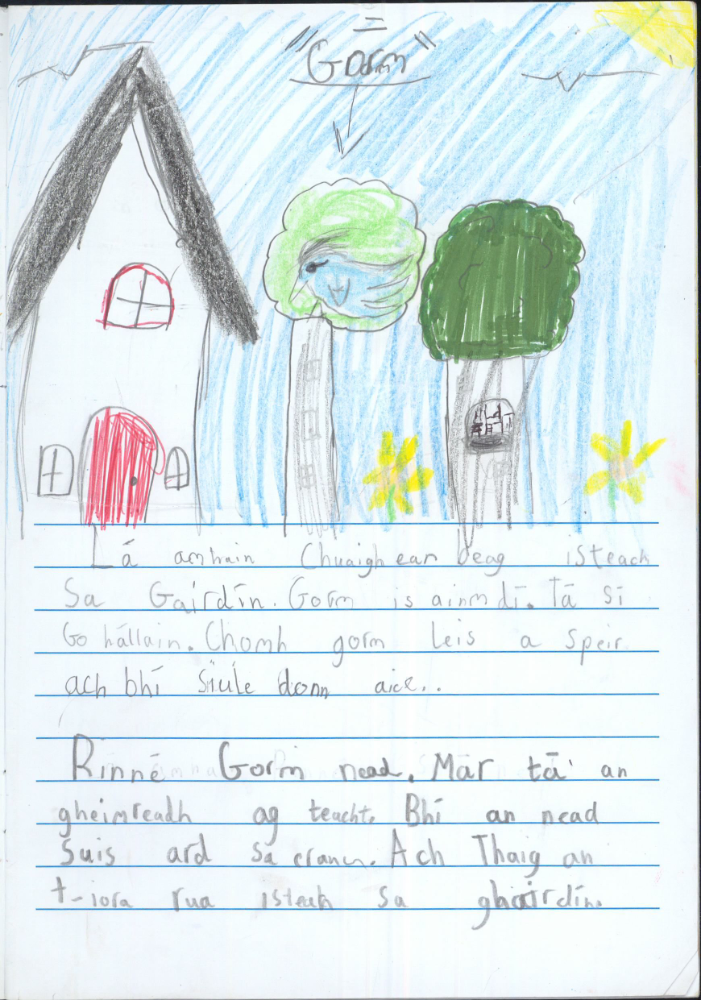 "Gorm"
Lá amhain Chuaigh ean beag isteach
Sa Gairdín. Gorm is ainm dí. Tá sí
Go hállain. Chomh gorm leis a speir
ach bhí Siúle donn aice..
Rinné Gorm nead. Mar tá an
gheimreadh ag teacht. Bhí an nead
Suis ard sa crann. Ach Thaig an
t-iora rua isteah sa ghairdín.